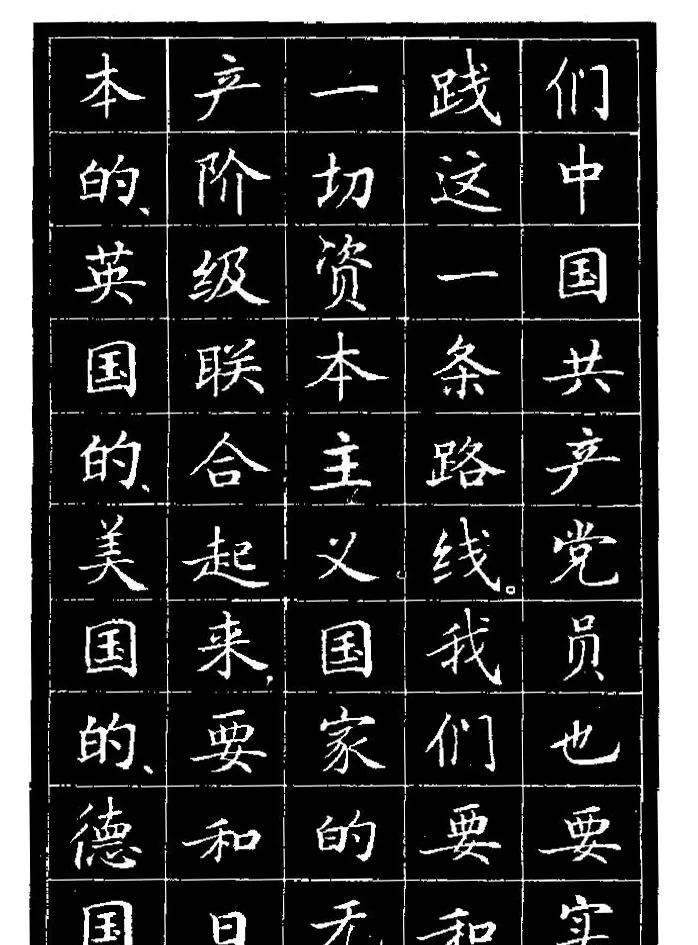 们中国共产党员也要实
践这一条路线。我们要和
一切资本主义国家的无
产阶级联合起来，要和日
本的、英国的、美国的、德国